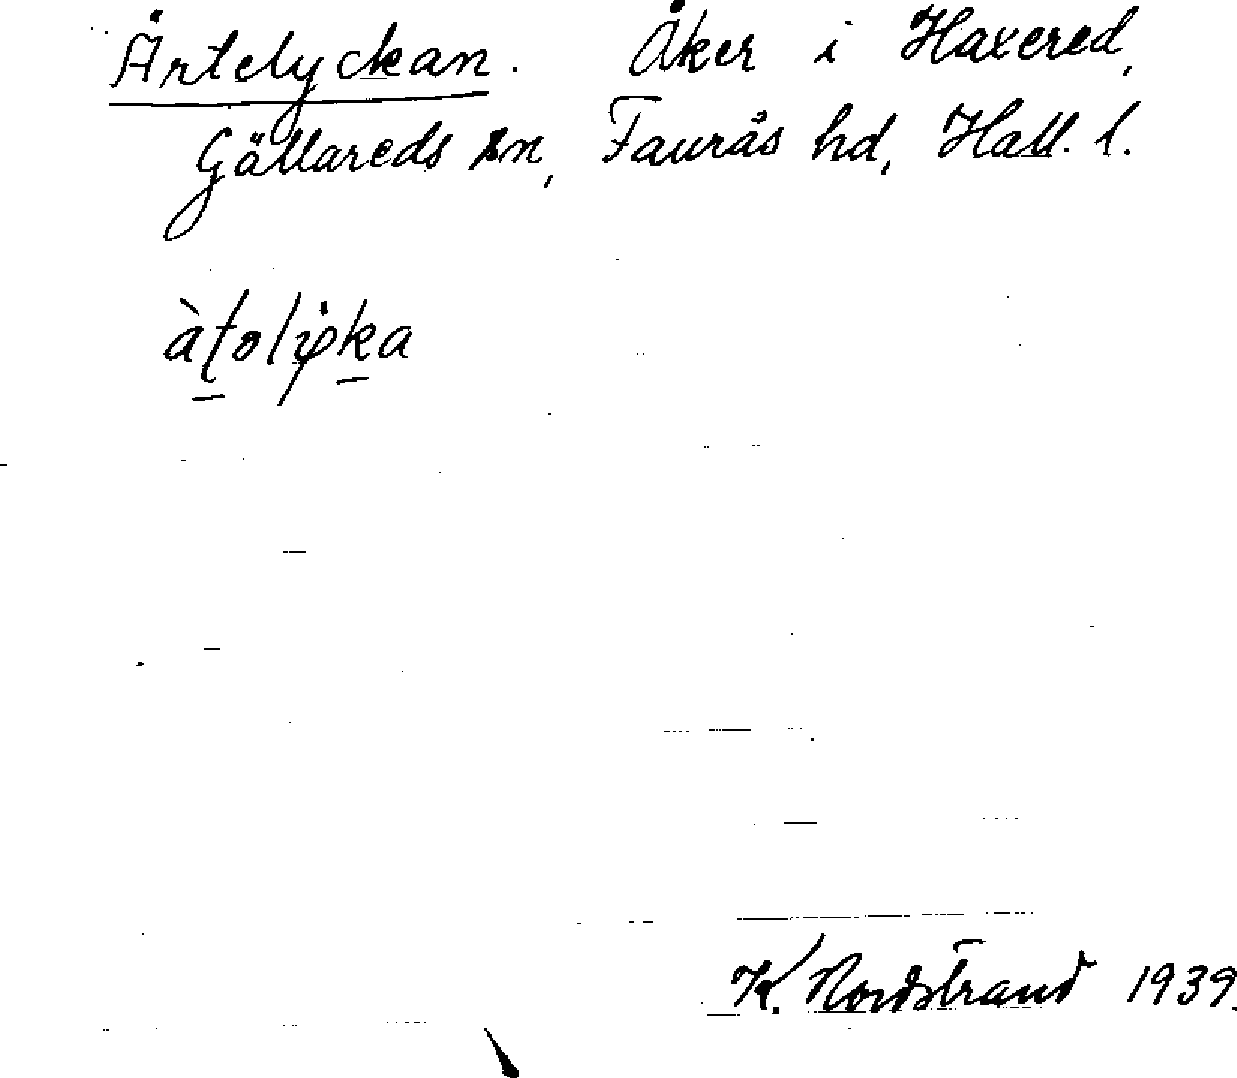 Ärtelyckan. Åker i Haxered,
Gällareds sn, Faurås hd, Hall. l.
K. Nordstrand 1939.